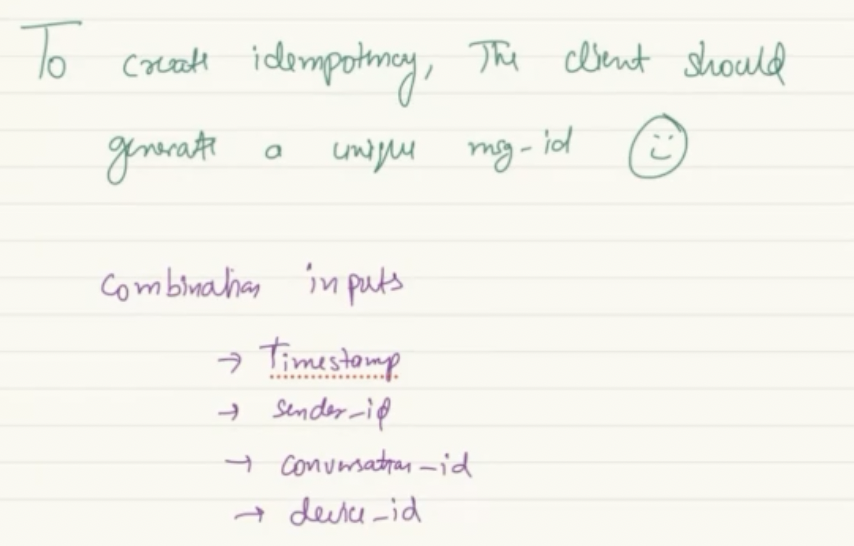 To create idempotency, The client should
generate a unique msg-id
Combination inputs
→ Timestamp
→ sender-ip
→ conversation-id
→ device-id